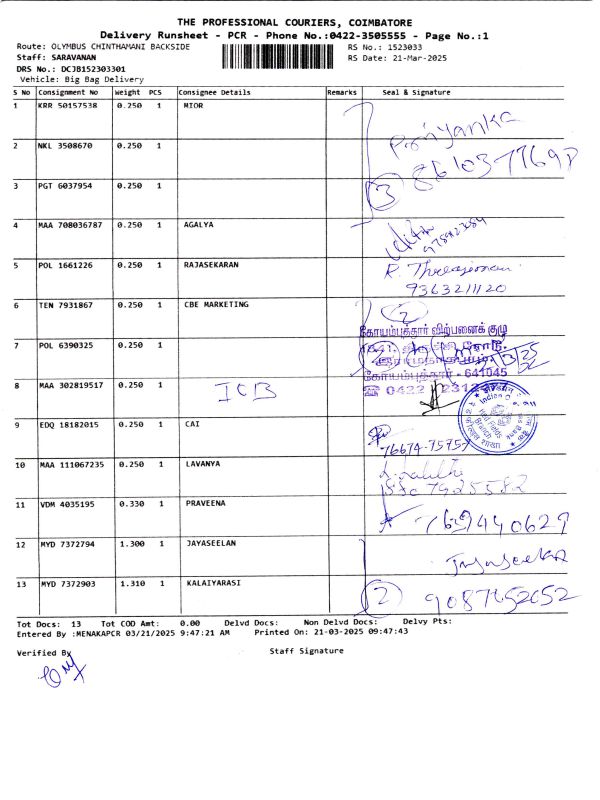 THE PROFESSIONAL COURIERS, COIMBATORE
Delivery Runsheet - PCR - Phone No.:0422-3505555 - Page No.:1
Route: OLYMBUS CHINTHAMANI BACKSIDE RS No.: 1523033
Staff: SARAVANAN RS Date: 21-Mar-2025
DRS No.: DCJB152303301
Vehicle: Big Bag Delivery
S No Consignment No Weight PCS Consignee Details Remarks Seal & Signature
1 KRR 50157538 0.250 1 MIOR
Priyanka
2 NKL 3508670 0.250 1
3 PGT 6037954 0.250 1 3
4 MAA 708036787 0.250 1 AGALYA
5 POL 1661226 0.250 1 RAJASEKARAN
9363211120
6 TEN 7931867 0.250 1 CBE MARKETING 2
கோயம்புத்தூர் விற்பனைக் குழு
7 POL 6390325 0.250 1
கோயம்புத்தூர் - 641045
8 MAA 302819517 0.250 1 ICB
☎ 0422
9 EDQ 18182015 0.250 1 CAI
76674-75757
10 MAA 111067235 0.250 1 LAVANYA
11 VDM 4035195 0.330 1 PRAVEENA
7629440629
12 MYD 7372794 1.300 1 JAYASEELAN
13 MYD 7372903 1.310 1 KALAIYARASI 2
Tot Docs: 13 Tot COD Amt: 0.00 Delvd Docs: Non Delvd Docs: Delvy Pts:
Entered By :MENAKAPCR 03/21/2025 9:47:21 AM Printed On: 21-03-2025 09:47:43
Verified By Staff Signature